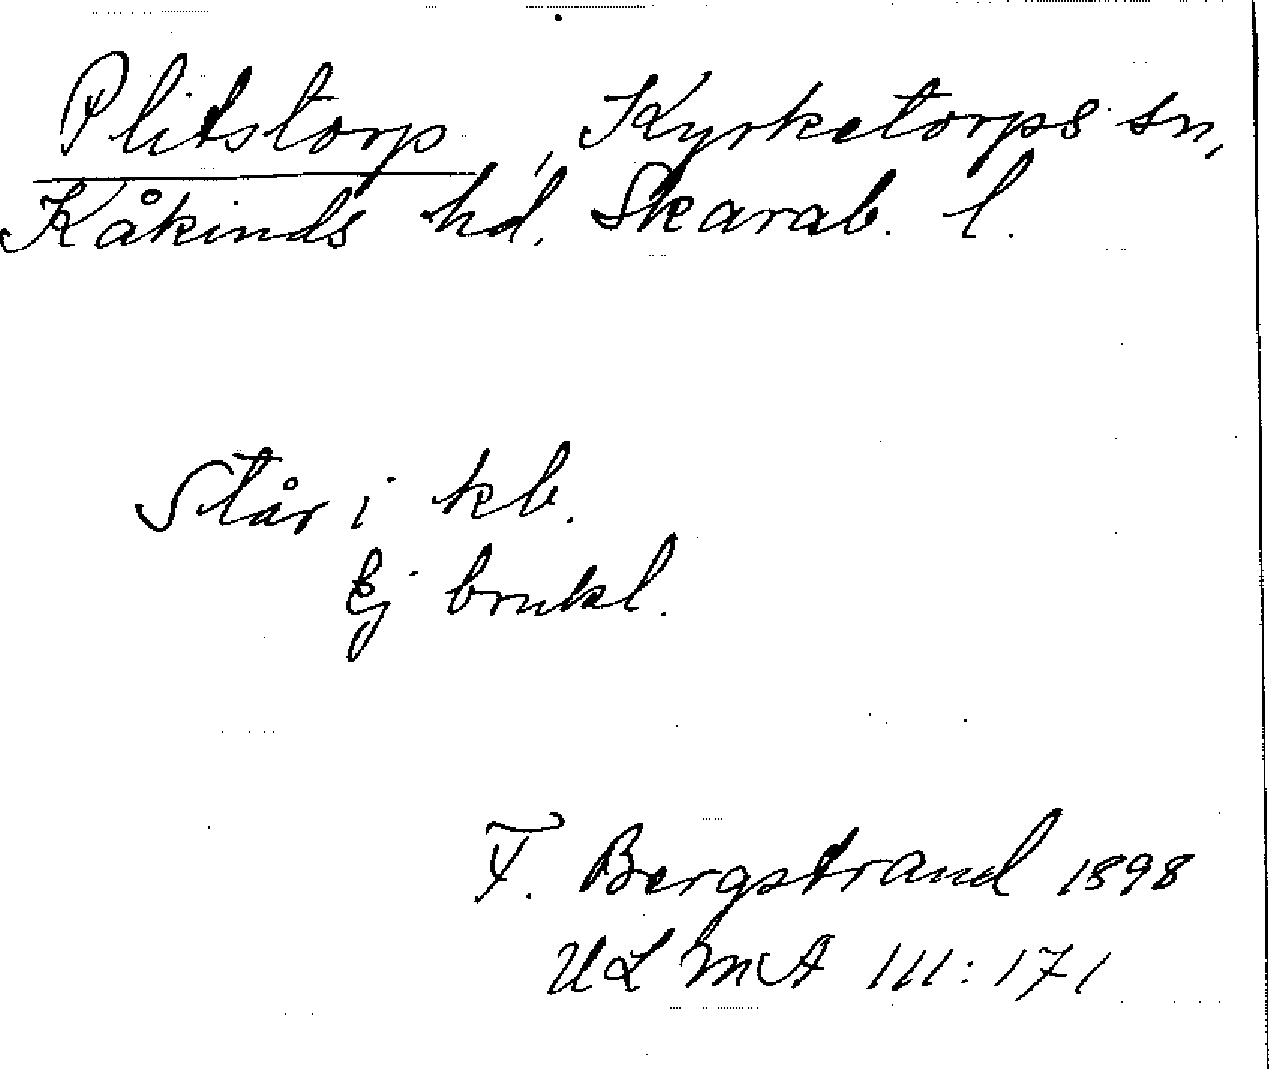 Plitstorp, Kyrketorps sn,
Kåkinds hd. Skarab. l.
Står i kb.
Ej brukl.
F. Bergstrand 1898
ULMA 111:171